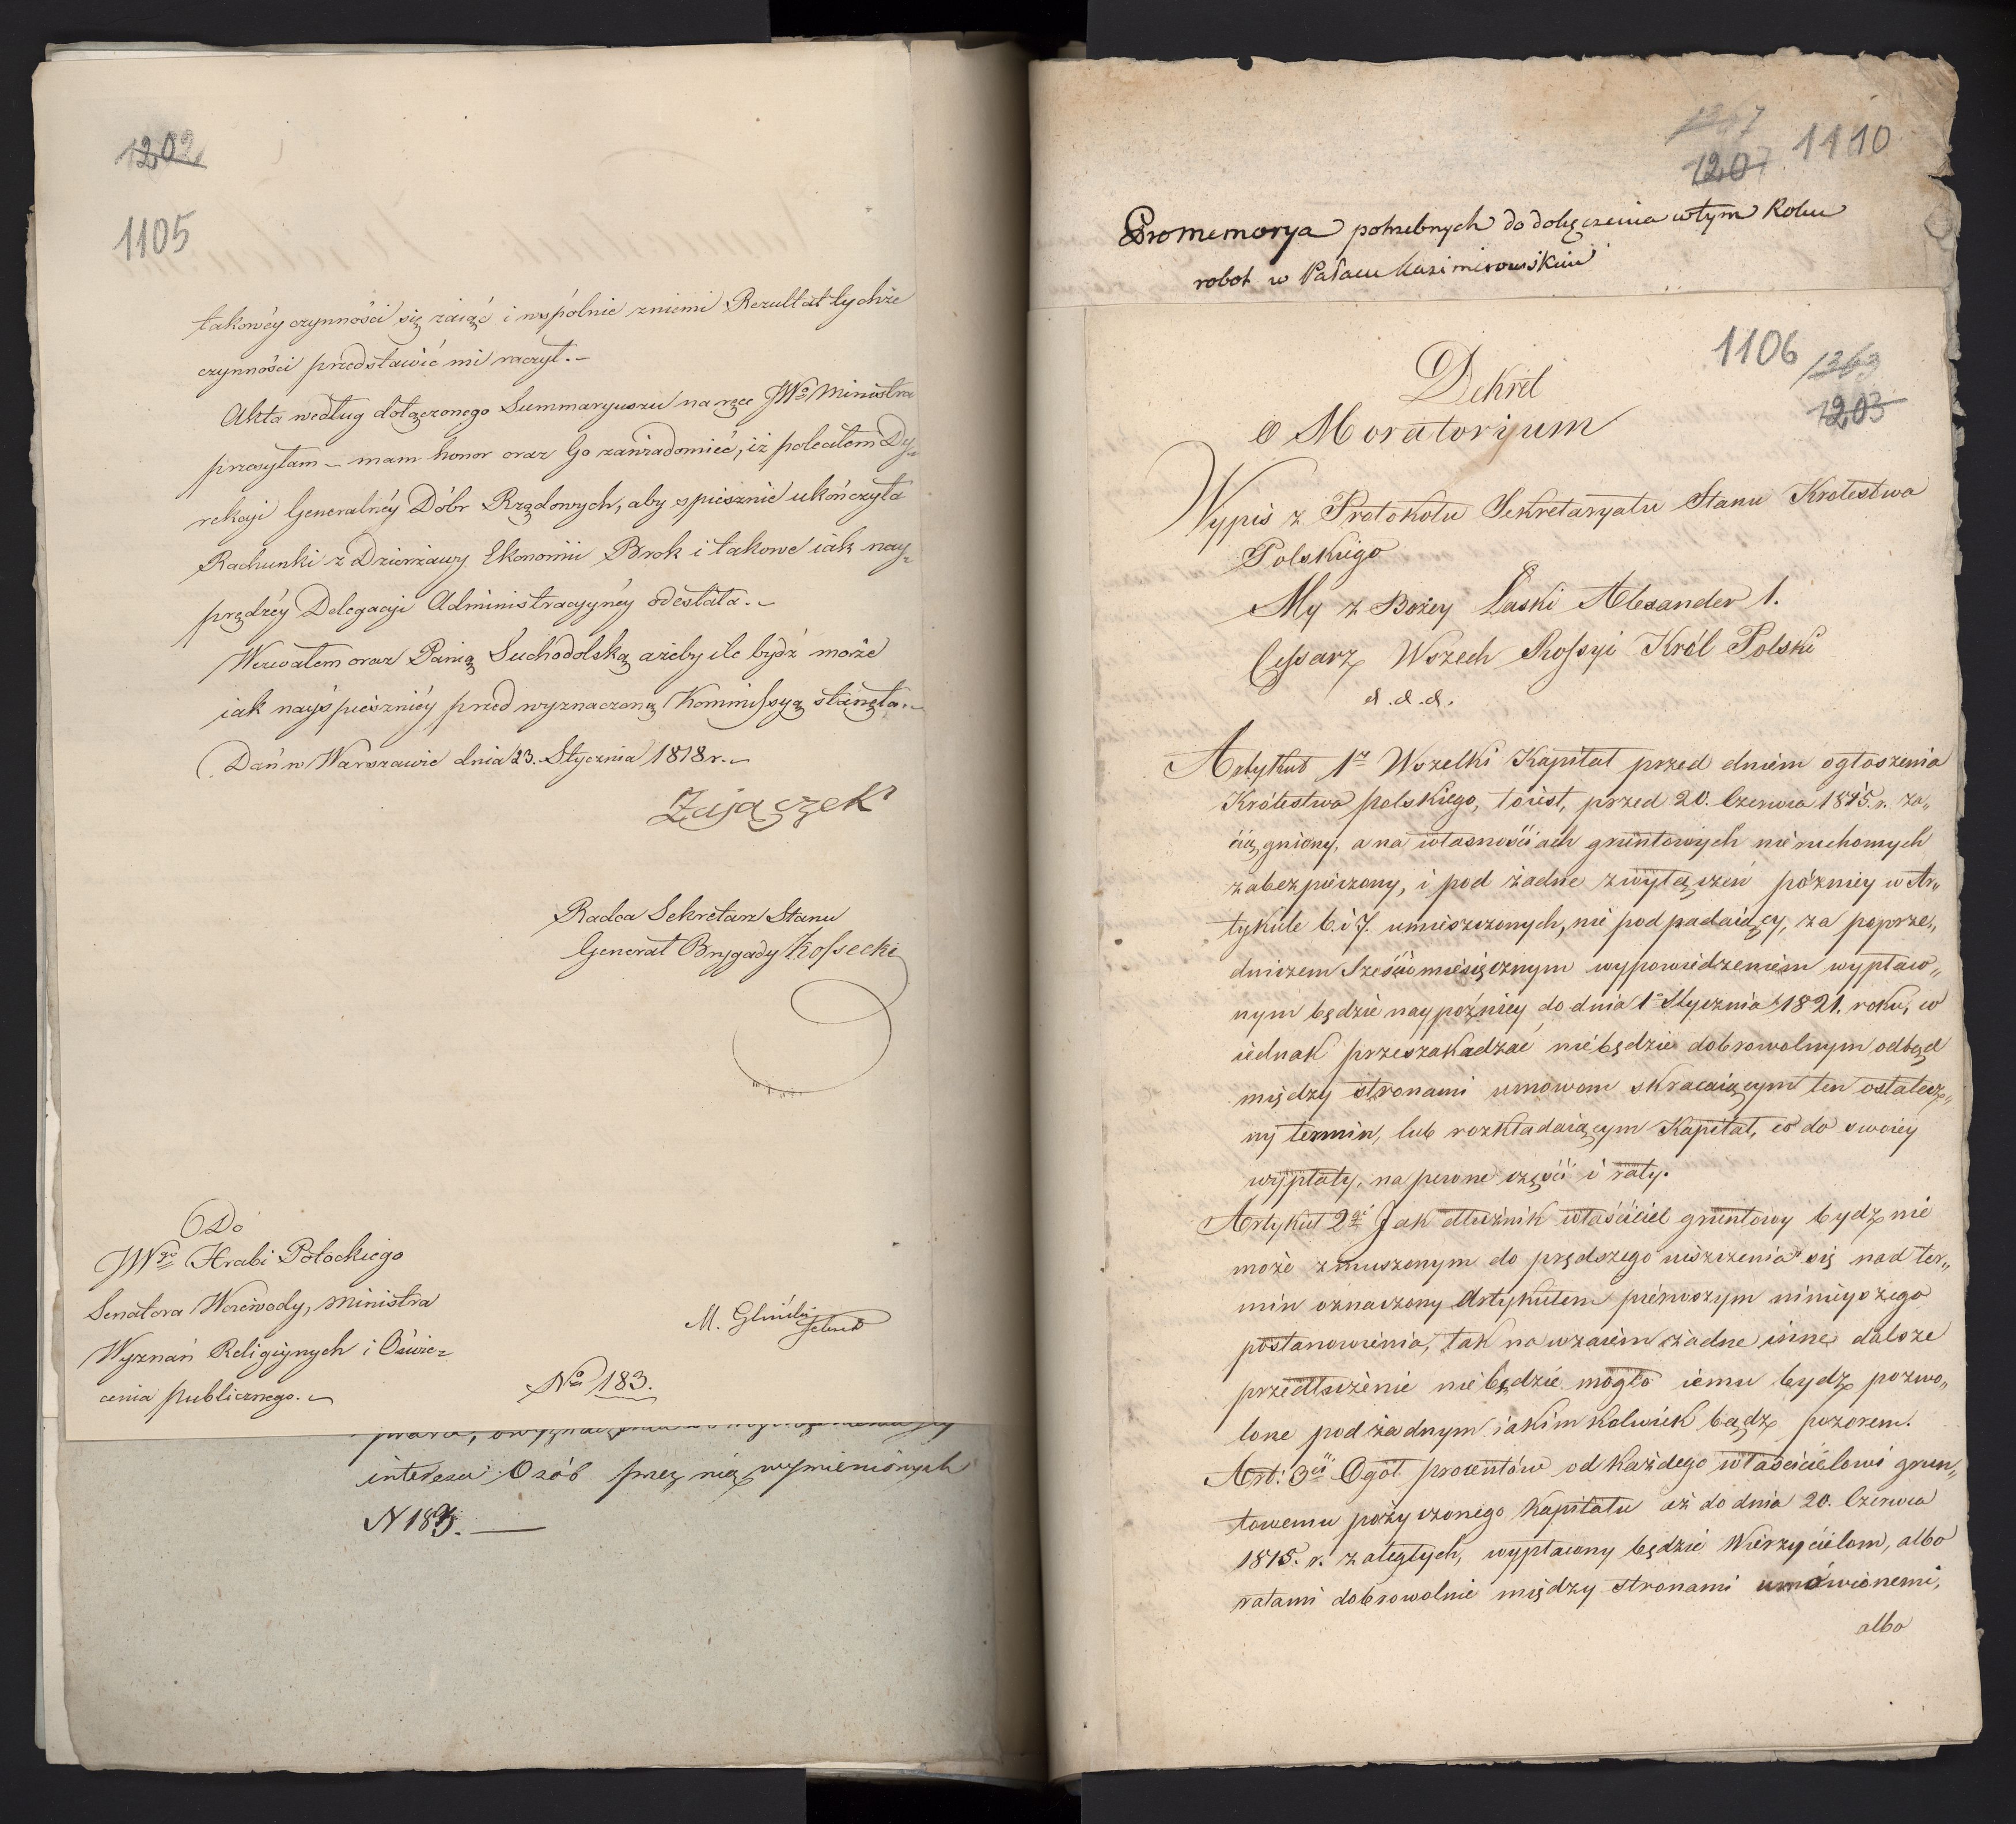 1202
1105
takowéy czynności się zaiąć i wspólnie zniemi Rezultat tychże
czynności przedstawić mi raczył.-
Akta według dołączonego Summaryuszu na ręce JWo Ministra
przesyłam - mam honor oraz Go zawiadomić, iż poleciłem Dy-
rekcyi Generalnéy Dóbr Rządowych, aby spiesznie ukończyła
Rachunki z Dzierżawy Ekonomii Brok i takowe iak nay-
prędzéy Delegacyi Administracyynéy odesłała.-
Wezwałem oraz Panią Suchodolską ażeby ile bydź może
iak nayśpieszniéy przed wyznaczoną Kommissyą stanęła.-
Dań w Warszawie dnia 23. Stycznia 1818 r.-
Zajączek
Radca Sekretarz Stanu
Generał Brygady Kossecki
Do
JWgo Hrabi Potockiego
Senatora Woiewody, Ministra
Wyznań Religiynych i Oświe-
cenia publicznego.-
M.
No 183.
interesa Osób przez nią wymienionych
N 183. —
1207
1110
Promemorya potrzebnych do dołączenia w tym Roku
robot w Pałacu Kazimirowskim
1106
1203
Dekret
o Moratoryum
Wypis z Protokołu Sekretaryatu Stanu Krolestwa
Polskiego
My z Bożey Łaski Alexander 1.
Cessarz Wszech Rossyi Król Polski
&.&.&.
Artykuł 1szy Wszelki Kapitał przed dniem ogłoszenia
Królestwa polskiego, toiest, przed 20. Czerwca 1815. r. za„
ciągniony, a na własnościach gruntowych nieruchomych
zabezpieczony, i pod żadne zwyłączeń pózniey w Ar„
tykule 6. i 7. umieszczonych, nie podpadaiący, za poprze„
dniczem Sześciomiesięcznym wypowiedzeniem wypław„
nym będzie naypoźniey do dnia 1o Stycznia 1821. roku, w
iednak przeszakadzać niebędzie dobrowolnym odbąd
między stronami umowom skracaiącym ten ostatecz„
ny termin, lub rozkładaiącym Kapitał, co do swoiey
wypłaty, na pewne części i raty.
Artykuł 2gi Jak dłużnik właściciel gruntowy bydz nie
może zmuszonym do prędszego uiszczenia się nad ter„
min oznaczony Artykułem pierwszym ninieyszego
postanowienia, tak nawzaiem żadne inne dalsze
przedłużenie niebędzie mogło iemu bydz pozwo„
lone pod żadnym iakimkolwiek bądz pozorem.
Art: 3ci Ogół procentów od każdego właścicielowi grun„
towemu pożyczonego Kapitału aż do dnia 20. Czerwca
1815. r. zaległych, wypłacony będzie Wierzycielom, albo
ratami dobrowolnie między stronami umówionemi,
albo